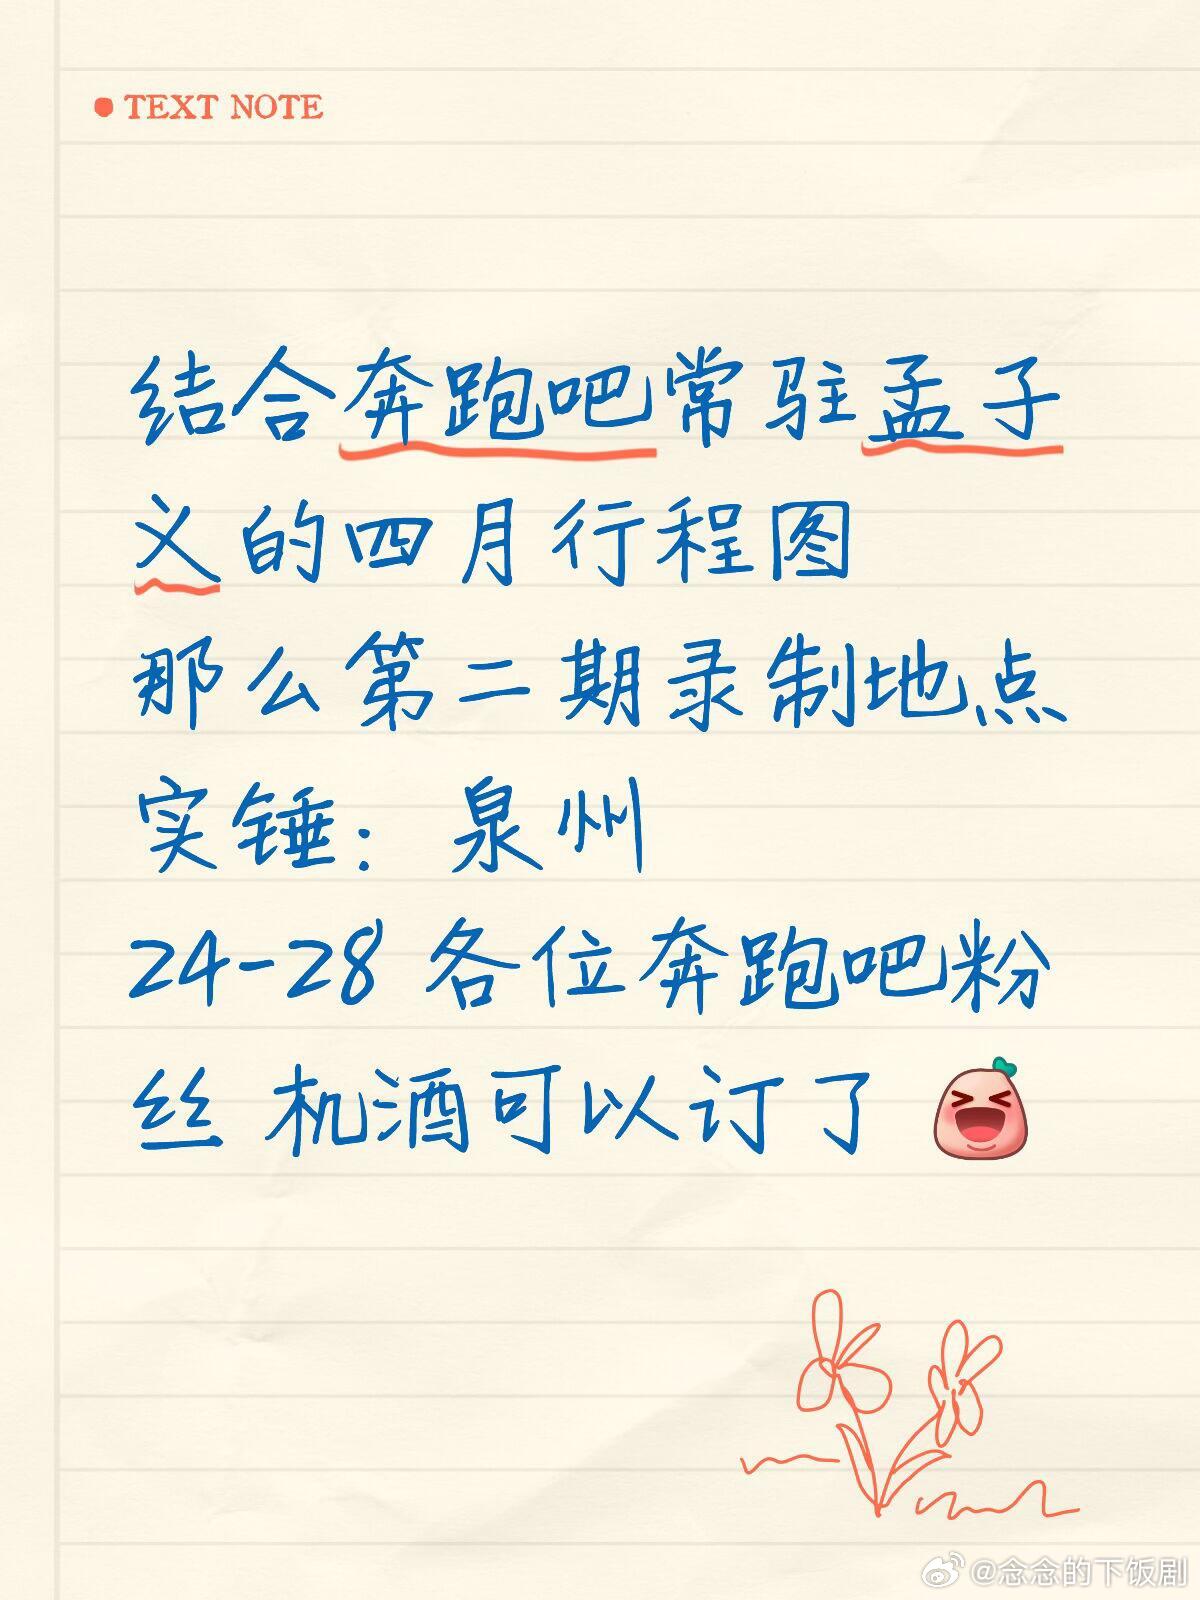 TEXT NOTE
结合奔跑吧常驻孟子
义的四月行程图
那么第二期录制地点
实锤：泉州
24-28 各位奔跑吧粉
丝 机酒可以订了
@念念的下饭剧